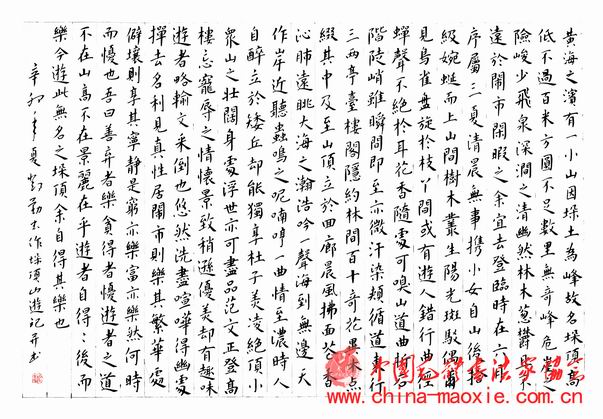 黄海之濱有一小山因垛土為峰故名垛頂高
低不過百米方圓不足數里無奇峰危崖之
險峻少飛泉深澗之清幽然林木葱欝甚不
遠於鬧市閑暇之余宜去登臨時在六月
序屬三夏清晨無事携小女自山後拾
級婉蜒而上山間樹木叢生陽光斑駁偶爾
見鳥雀盘旋於枝丫間或有遊人錯行曲徑
蟬聲不絕於耳花香隨處可嗅山道曲折石
階陡峭雖瞬間即至亦微汗染頰循道東行
三两亭臺樓閣隱約林間百十奇花異木点
綴其中及至山頂立於回廊晨風拂面花香
沁肺遠眺大海之瀚浩吟一聲海到無邊天
作岸近聽蟲鳴之呢喃哼一曲情至濃時人
自醉立於矮丘却能獨享杜子美凌絕頂小
衆山之壮闊身處浮世亦可盡品范文正登高
樓忘寵辱之情懷景致稍遜優美却有趣味
遊者略輸文采倒也悠然洗盡喧嘩得幽處
撣去名利見真性居鬧市則樂其繁華處
僻壤則享其寧静是窮亦樂富亦樂然何時
而憂也吾曰善弃者樂貪得者憂遊者之道
不在山高不在景麗在乎遊者自得〻後而
樂今遊此無名之垛頂余自得其樂也
辛卯年夏劉勤杰作垛頂山遊記并书
中国毛笔书法家协会
china-maoxie.com